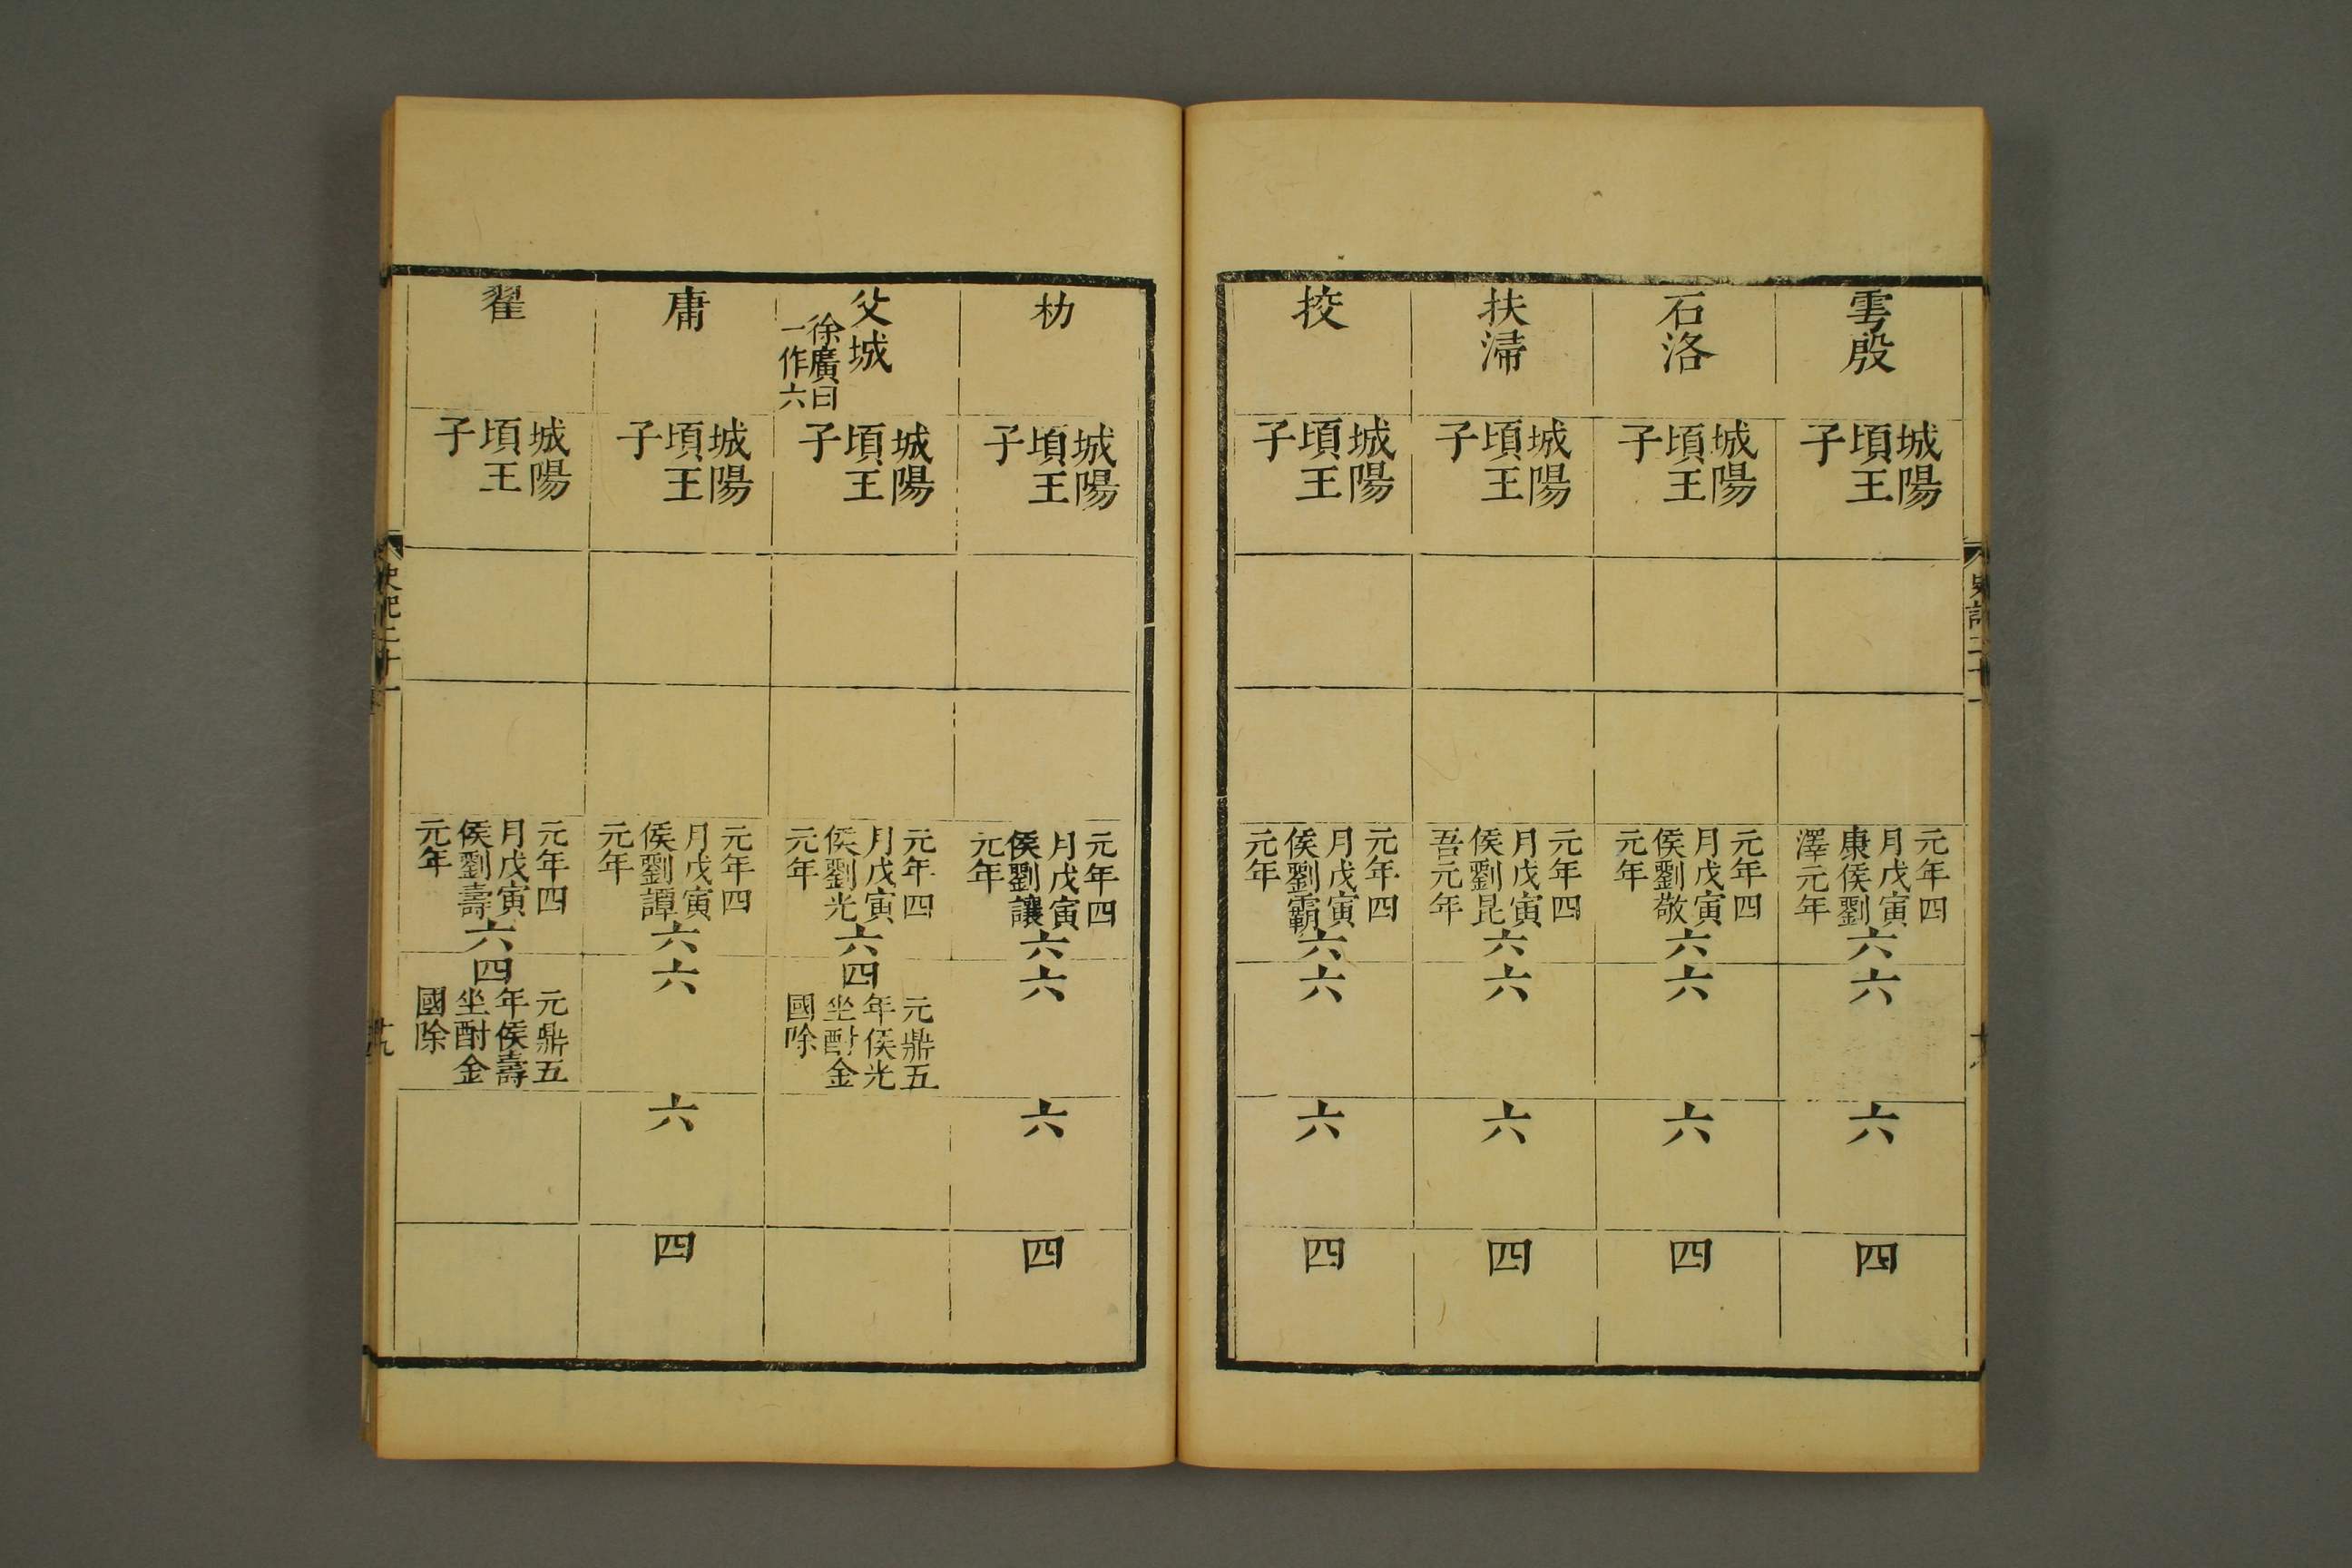 雩殷
城陽
頃王
子
元年四
月戊寅
康侯劉
澤元年
六
六
六
四
石洛
城陽
頃王
子
元年四
月戊寅
侯劉敬
元年
六
六
六
四
扶㴆
城陽
頃王
子
元年四
月戊寅
侯劉昆
吾元年
六
六
六
四
挍
城陽
頃王
子
元年四
月戊寅
侯劉霸
元年
六
六
六
四
朸
城陽
頃王
子
元年四
月戊寅
侯劉讓
元年
六
六
六
四
父城
徐廣曰
一作六
城陽
頃王
子
元年四
月戊寅
侯劉光
元年
六
四
元鼎五
年侯光
坐酎金
國除
庸
城陽
頃王
子
元年四
月戊寅
侯劉譚
元年
六
六
六
四
翟
城陽
頃王
子
元年四
月戊寅
侯劉壽
元年
六
四
元鼎五
年侯壽
坐酎金
國除
史記二十一